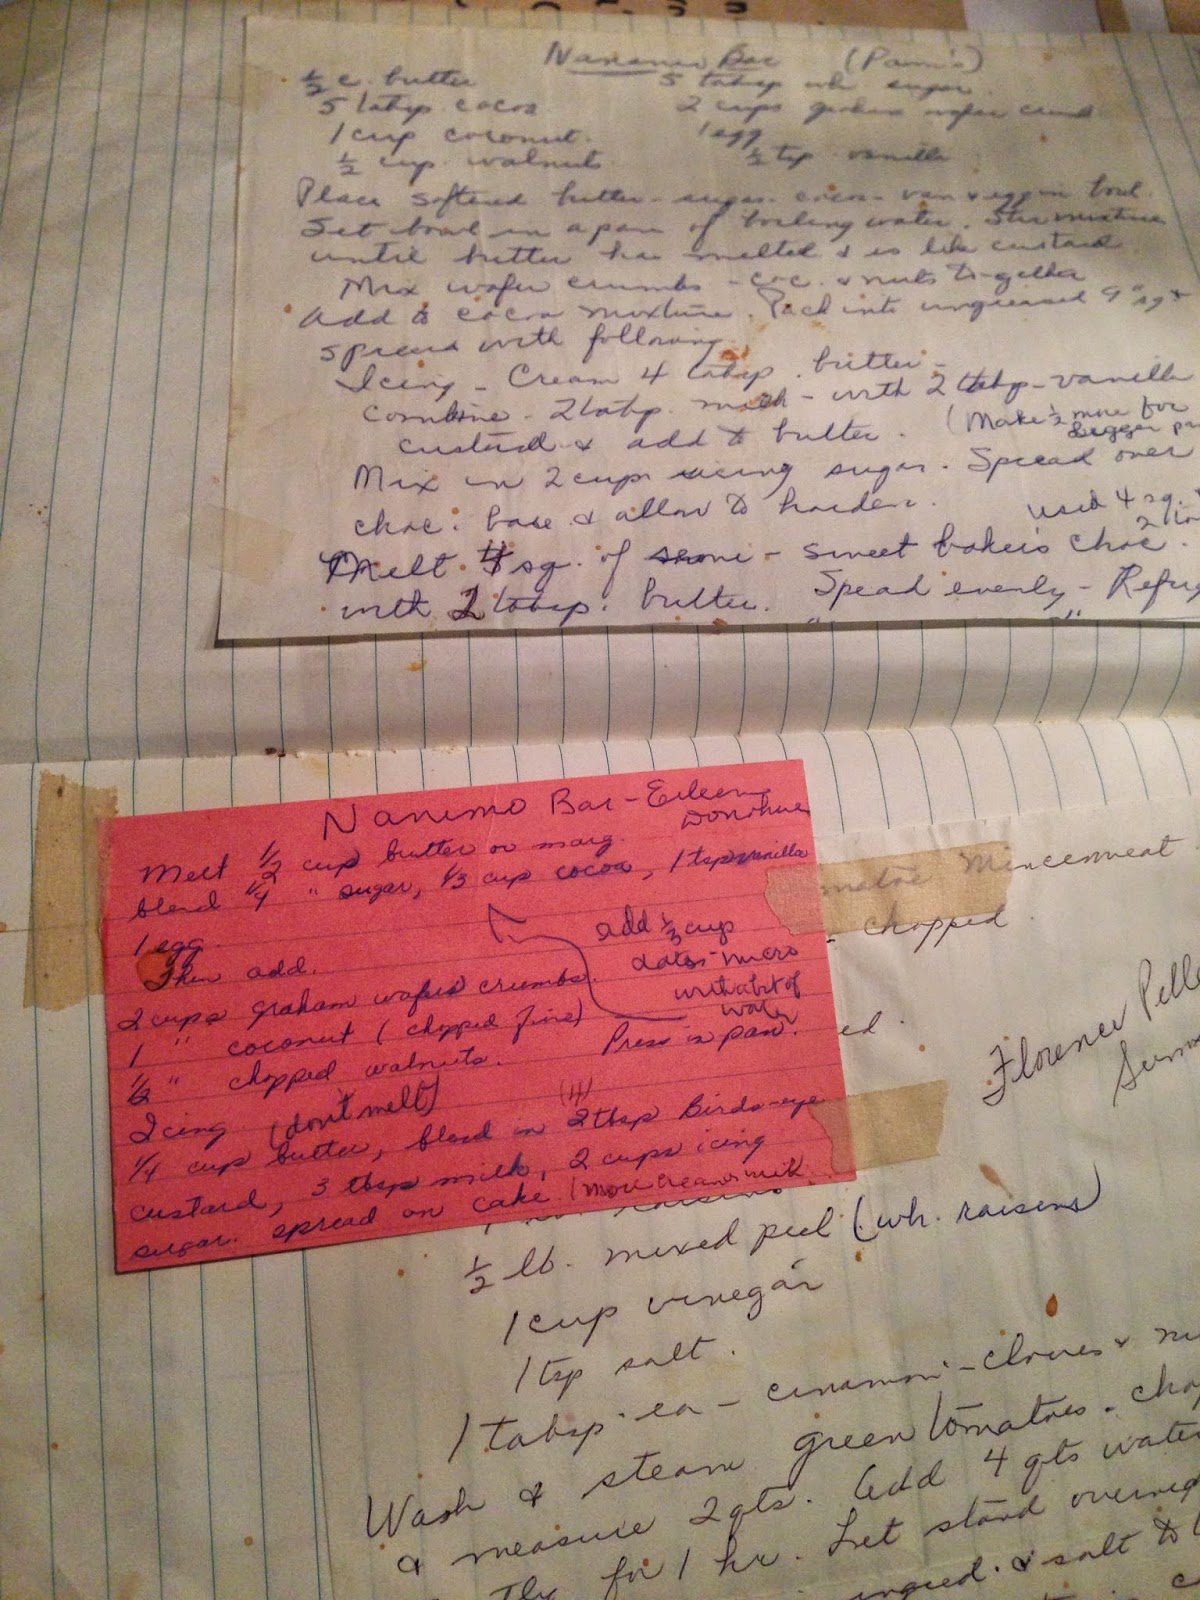 Nanimo Bar (Pam's)
½ c. butter 5 tabsp wh sugar
5 tabsp cocoa 2 cups graham wafer crumbs
1 cup coconut. 1 egg
½ cup walnuts ½ tsp vanilla
Place softened butter - sugar - cocoa - van & egg in bowl.
Set bowl in a pan of boiling water. Stir mixture
until butter has melted & is like custard
Mix wafer crumbs - coc. & nuts to-gether
Add to cocoa mixture. Pack into ungreased 9" sq &
spread with following
Icing - Cream 4 tabsp butter -
combine - 2 tabsp. milk - with 2 tbsp - vanilla
custard & add to butter. (Make ½ more for
bigger pan
Mix in 2 cups icing sugar. Spread over
choc. base & allow to harden. used 4 sq. &
Melt 4 sq. of semi - sweet bakers choc.
with 2 tabsp. butter. Spread evenly - Refrig
Nanimo Bar - Eileen
Donohue
Melt ½ cup butter or marg.
blend ¼ " sugar, ⅓ cup cocoa, 1 tsp vanilla
1 egg
Then add.
add ⅓ cup
dates - micro
with a bit of
water
2 cups graham wafers crumbs.
1 " coconut (chopped fine)
½ " chopped walnuts. Press in pan.
Icing (don't melt)
(4)
¼ cup butter, blend in 2 tbsp Birds-eye
custard, 3 tbsp milk, 2 cups icing
sugar. spread on cake (more cream or milk
Mincemeat
- chopped
ed.
Florence
raisins
½ lb. mixed peel (wh. raisins)
1 cup vinegar
1 tsp salt.
1 tabsp ea - cinammon - cloves &
Wash & steam green tomatoes -
& measure 2 qts. Add 4 qts water
for 1 hr. Let stand
ingred. & salt to